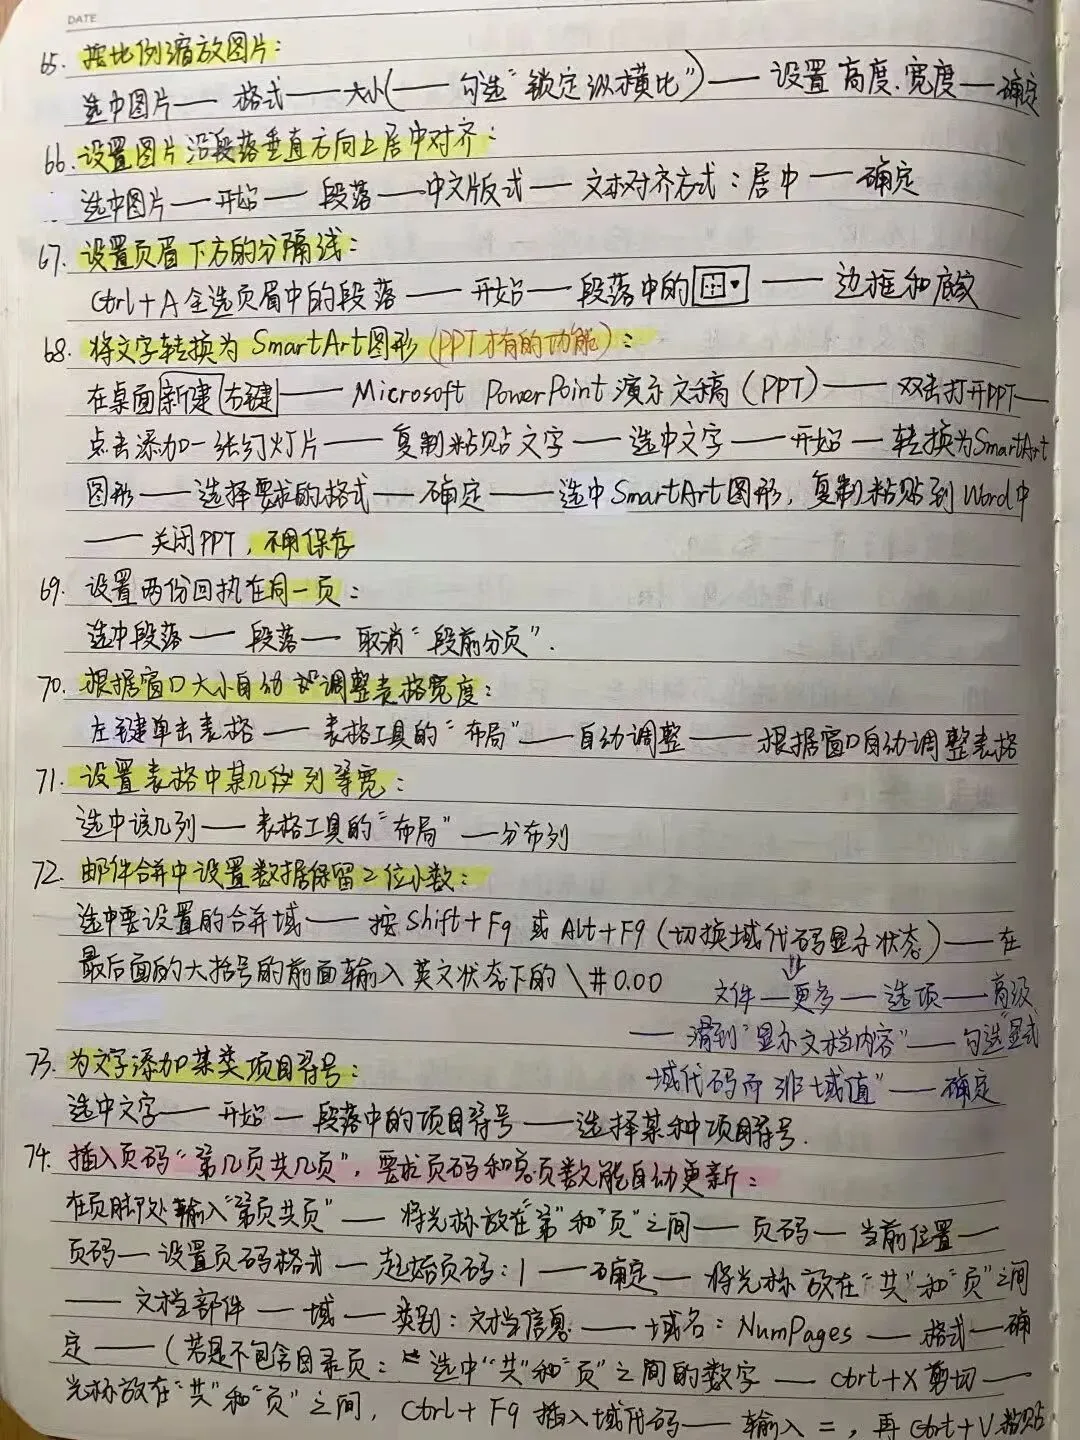 DATE
65. 按比例缩放图片:
选中图片——格式——大小(——勾选“锁定纵横比”)——设置高度、宽度——确定
66. 设置图片沿段落垂直方向上居中对齐:
选中图片——开始——段落——中文版式——文本对齐方式:居中——确定
67. 设置页眉下方的分隔线:
Ctrl+A全选页眉中的段落——开始——段落中的——边框和底纹
68. 将文字转换为SmartArt图形(PPT才有的功能):
在桌面新建右键——Microsoft PowerPoint演示文稿(PPT)——双击打开PPT——
点击添加一张幻灯片——复制粘贴文字——选中文字——开始——转换为SmartArt
图形——选择要求的格式——确定——选中SmartArt图形,复制粘贴到Word中
——关闭PPT,不用保存
69. 设置两份回执在同一页:
选中段落——段落——取消“段前分页”.
70. 根据窗口大小自动调整表格宽度:
左键单击表格——表格工具的“布局”——自动调整——根据窗口自动调整表格
71. 设置表格中某几列等宽:
选中该几列——表格工具的“布局”——分布列
72. 邮件合并中设置数据保留2位小数:
选中要设置的合并域——按Shift+F9或Alt+F9(切换域代码显示状态)——在
最后面的大括号的前面输入英文状态下的\#0.00
文件——更多——选项——高级
——滑到“显示文档内容”——勾选“显式
域代码而非域值”——确定
73. 为文字添加某类项目符号:
选中文字——开始——段落中的项目符号——选择某种项目符号.
74. 插入页码“第几页共几页”,要求页码和总页数能自动更新:
在页脚处输入“第页共页”——将光标放在“第”和“页”之间——页码——当前位置——
页码——设置页码格式——起始页码:1——确定——将光标放在“共”和“页”之间
——文档部件——域——类别:文档信息——域名:NumPages——格式——确
定——(若是不包含目录页:选中“共”和“页”之间的数字——ctrl+X剪切——
光标放在“共”和“页”之间,Ctrl+F9插入域代码——输入=,再Ctrl+V粘贴